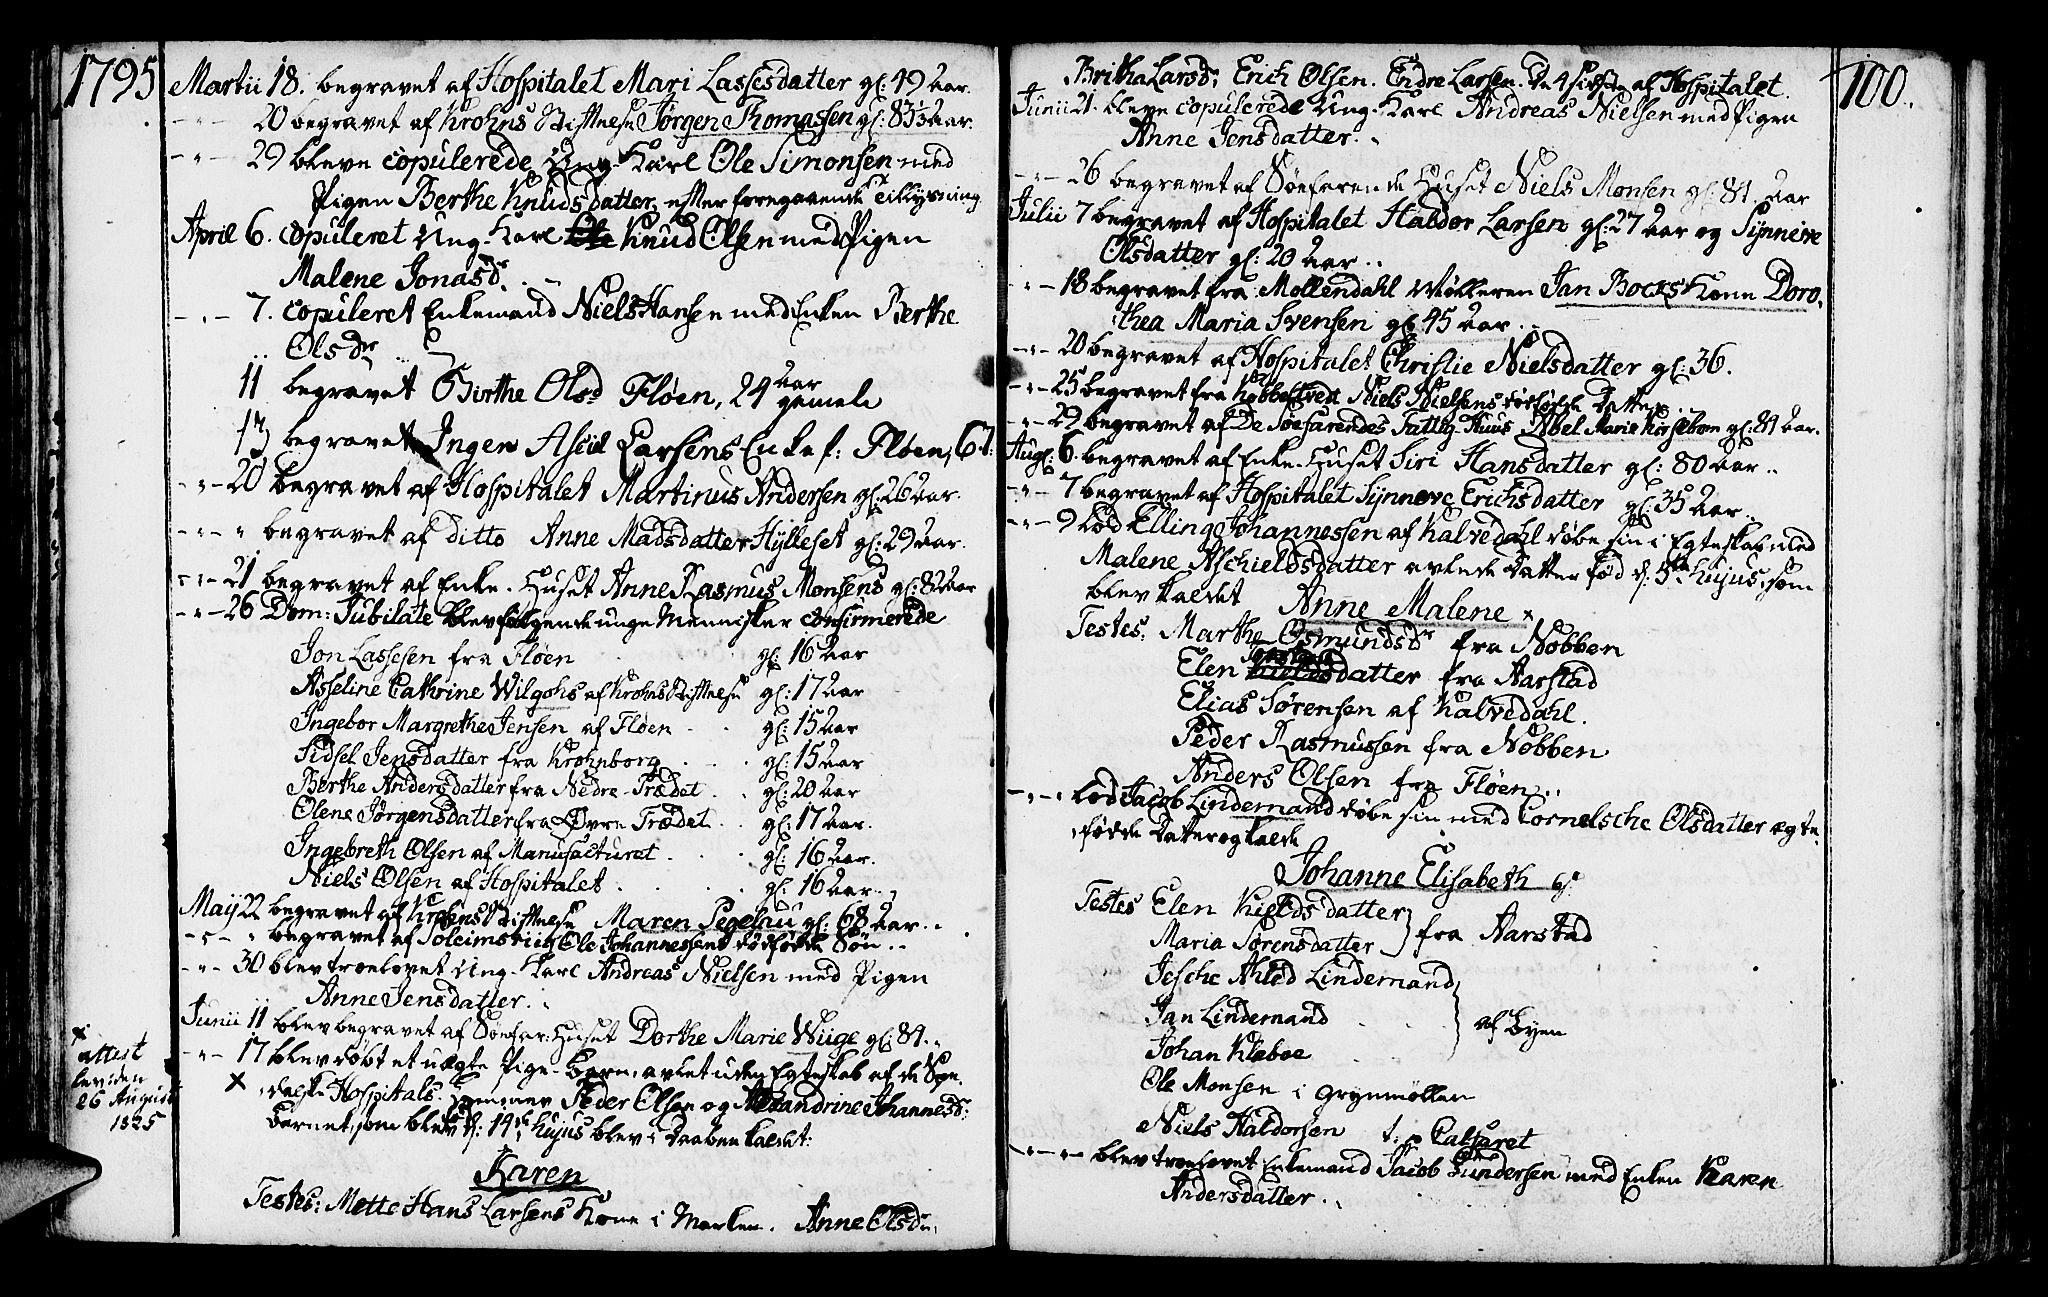 1795
Martii 18. begravet af Hospitalet Mari Lassesdatter gl: 49 Aar.
- " - 20 begravet af Krohns Stiftelse Jørgen Thomassen gl: 83½ Aar.
- " - 29 bleve copulerede Ung-Karl Ole Simonsen med
Pigen Berthe Knudsdatter, efter foregaaende Tillysning
April 6. copuleret Ung-Karl Knud Olsen med Pigen
Malene Jonasdr.
- " - 7. copuleret Enkemand Niels Hansen med Enken Berthe
Olsdr
11 begravet Birthe Olsd Fløen, 24 aar gamele
13 begravet Larsens Enke f: Fløen, 67:
- " - 20 begravet af Hospitalet Martinus Andersen gl: 26 Aar.
- " - " begravet af ditto Anne Madsdatter Hylleset gl: 29 Aar.
- " - 21 begravet af Enke-Huset Anne Rasmus Monsens gl: 82 Aar
- " - 26 Dom: Jubilate blev følgende unge Mennisker confirmerede
Jon Lassesen fra Fløen gl: 16 Aar
Asseline Cathrine Wilgohs af Krohns Stiftelse gl: 17 Aar
Ingebor Margrethe Jensen af Fløen gl: 15 Aar
Sidsel Jensdatter fra Krohnborg gl: 15 Aar
Berthe Andersdatter fra Nedre-Trædet gl: 20 Aar
Olene Jørgensdatter fra Øvre Trædet gl: 17 Aar.
Ingebreth Olsen af Manufacturet gl: 16 Aar.
Niels Olsen af Hospitalet gl: 16 Aar.
Maij 22 begravet af Krohns Stiftelse Maren Segelau gl: 68 Aar.
- " - " begravet af Soleimsviig Ole Johannessens dødfødde Søn
- " - 30 blev troelovet Ung-Karl Andreas Nielsen med Pigen
Anne Jensdatter.
Junii 11 blev begravet af Søefar: Huset Dorthe Marie Wiige gl: 84.
- " - 17 blev døbt et uægte Pige-Barn, avlet uden Egteskab af de Spe-
x dalske Hospitals-Lemmer Peder Olsen og Alexandrine Johannesd:
Barnet, som blev f: 14de hujus blev i Daaben kaldet:
Karen
Testes: Mette Hans Larsens Kone i Marken. Anne Olsdr,
x
attest
leveden
26 August
1825
100.
Britha Larsd: Erich Olsen. Endre Larsen. De 4 sidste af Hospitalet.
Junii 21. bleve copulerede Ung-Karl Andreas Nielsen med Pigen
Anne Jensdatter.
- " - 26 begravet af Søefarende Huset Niels Monsen gl: 81 Aar
Julii 7 begravet af Hospitalet Haldor Larsen gl: 27 Aar og Synneve
Olsdatter gl: 20 Aar.
- " - 18 begravet fra Møllendahl Mølleren Jan Bocks Kone Doro-
thea Maria Svensen gl: 45 Aar.
- " - 20 begravet af Hospitalet Christie Nielsdatter gl: 36.
- " - 25 begravet fra Kobbeltvedt Niels Nielsens dødfødde Datter
- " - 29 begravet af De Søefarendes Fattig-Huus Abel Marie Korsebom gl: 81 Aar.
Augl: 6. begravet af Enke-Huset Siri Hansdatter gl: 80 Aar
- " - 7 begravet af Hospitalet Synneve Erichsdatter gl: 35 Aar
- " - 9 Lod Elling Johannessen af Kalvedahl døbe sin i Egteskab med
Malene Aschieldsdatter avlede Datter fød d: 5te hujus, som
blev kaldet Anne Malene x
Testes: Marthe Osmundsdr fra Nobben
Elen datter fra Aarstad
Elias Sørensen af Kalvedahl.
Peder Rasmussen fra Nobben
Anders Olsen fra Fløen
- " - " Lod Jacob Lindernand døbe sin med Cornelsche Olsdatter ægte-
fødde Datter og kalde
Johanne Elisabeth
Testes Elen Kieldsdatter } fra Aarstad
Maria Sørensdatter
Jesche Ahled Lindernand
Jan Lindernand } af Byen
Johan Klæboe
Ole Monsen i Grynmøllen
Niels Haldorsen
- " - " - blev troelovet Enkemand Jacob Gundersen med Enken Karen
Andersdatter.